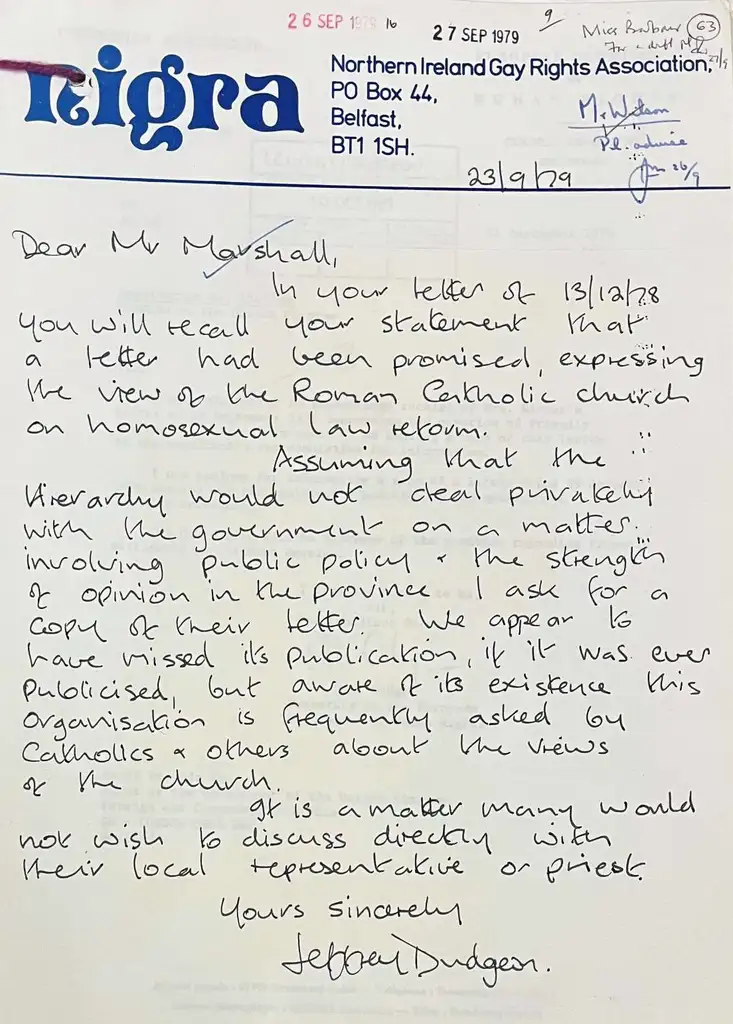 26 SEP 1979
16
27 SEP 1979
9
Miss Barbour
63
For a draft
27/9
nigra
Northern Ireland Gay Rights Association,
PO Box 44,
Belfast,
BT1 1SH.
Mr Wilson
Pl. advise
26/9
23/9/79
Dear Mr Marshall,
In your letter of 13/12/78
you will recall your statement that
a letter had been promised, expressing
the view of the Roman Catholic church
on homosexual law reform.
Assuming that the
Hierarchy would not deal privately
with the government on a matter
involving public policy & the strength
of opinion in the province I ask for a
copy of their letter. We appear to
have missed its publication, if it was ever
publicised, but aware of its existence this
organisation is frequently asked by
Catholics & others about the views
of the church.
It is a matter many would
not wish to discuss directly with
their local representative or priest.
Yours sincerely
Jeffrey Dudgeon.